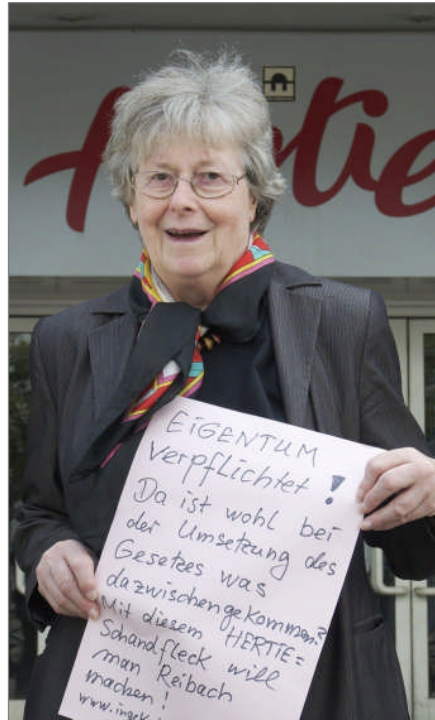 EIGENTUM
verpflichtet!
Da ist wohl bei
der Umsetzung des
Gesetzes was
dazwischengekommen?
Mit diesem HERTIE=
Schandfleck will
man Reibach
machen!